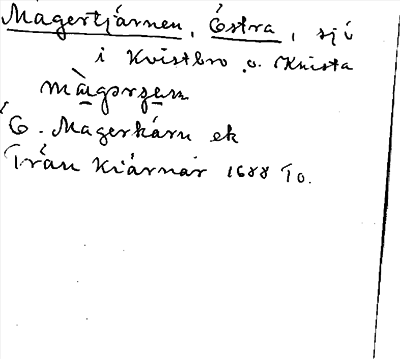 Magertjärnen, Östra, sjö
i Kvistbro o. Knista
Ö. Magerkärn ek
Trän Kiärnar 1688 To.